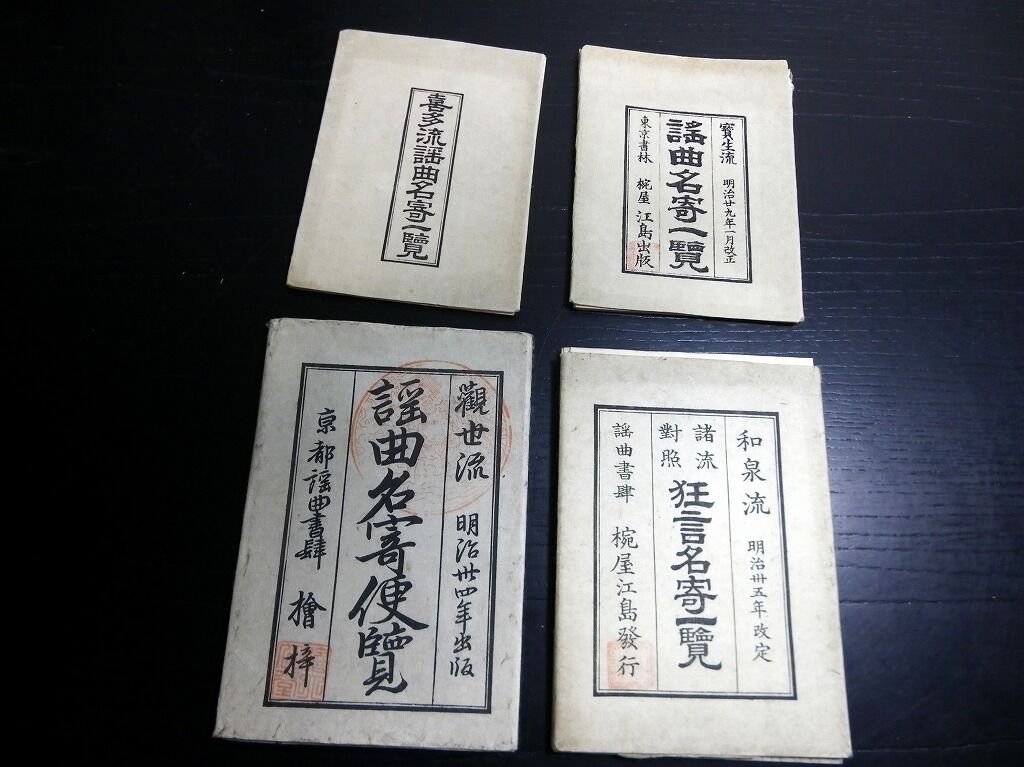 喜多流謡曲名寄一覽
寳生流 明治廿九年一月改正
謡曲名寄一覽
東京書林 椀屋 江島出版
觀世流 明治卅四年出版
謡曲名寄便覽
京都謡曲書肆 檜梓
和泉流 明治卅五年改定
諸流
對照
狂言名寄一覽
謡曲書肆 椀屋江島發行